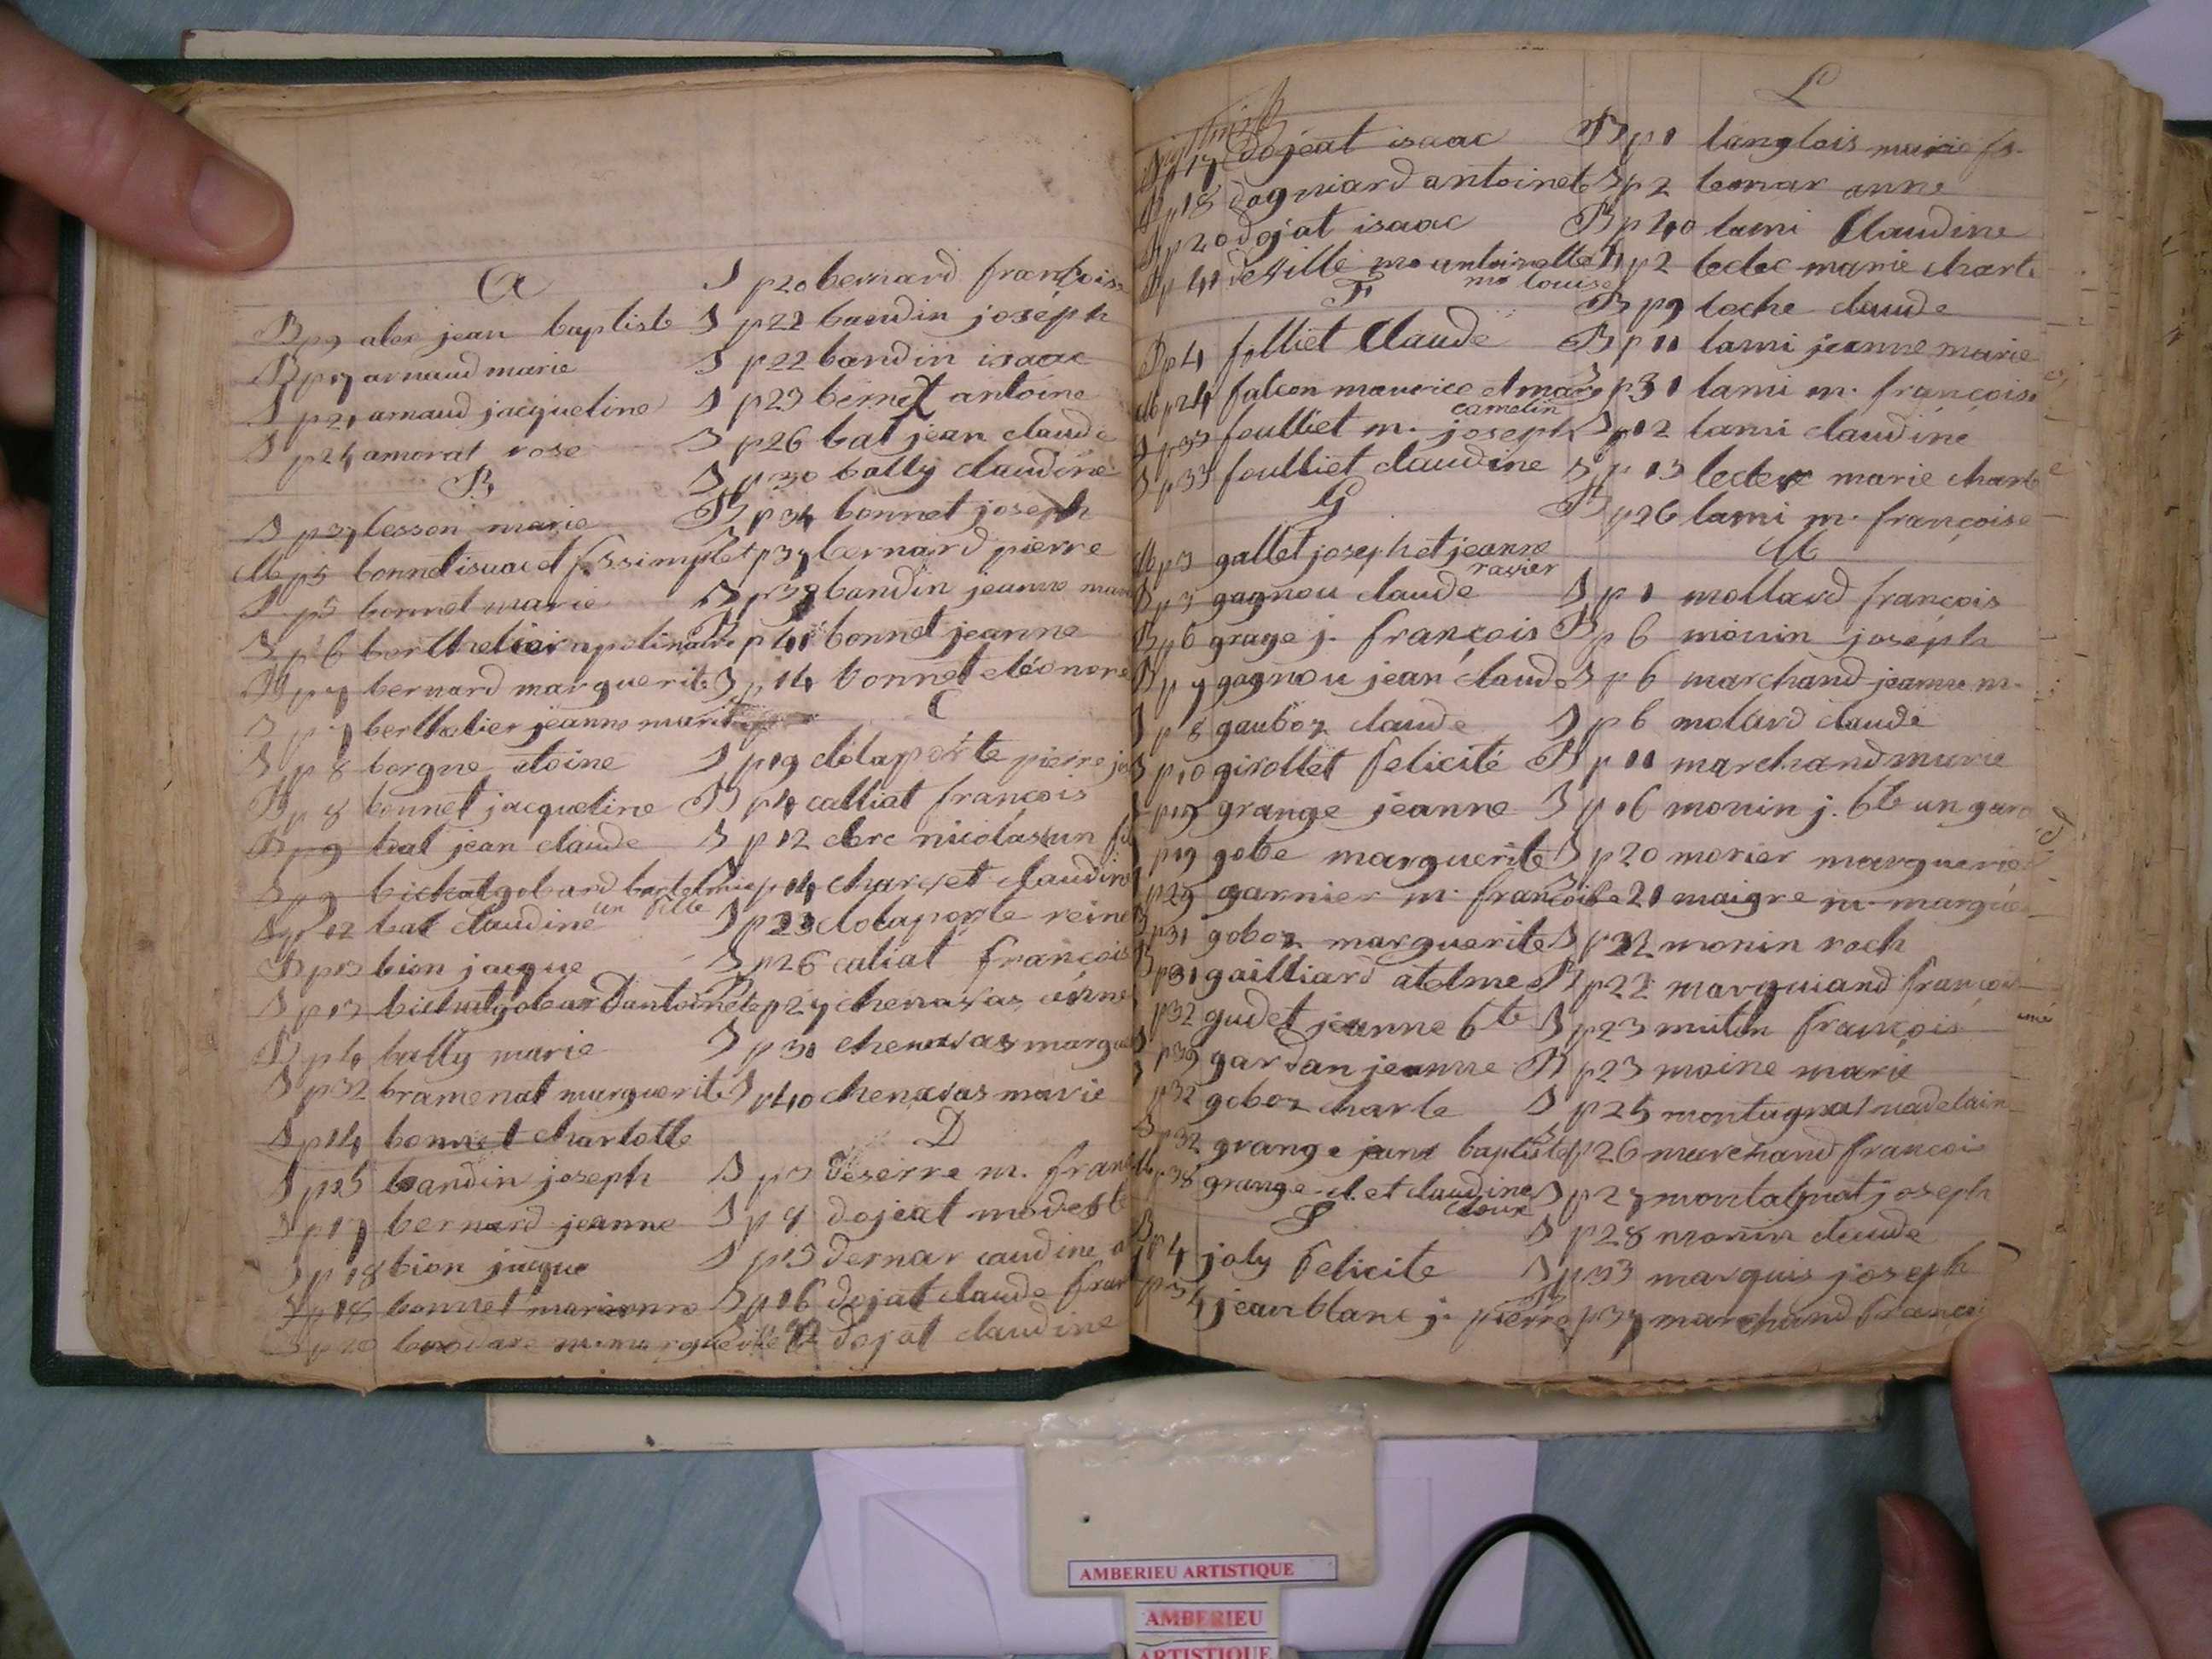 A
B p9 alex jean baptiste
B p17 arnaud marie
S p21 arnaud jacqueline
S p24 amorat rose
B
S p37 besson marie
M p5 bonnet isaac et
S p5 bonnet marie
S p6 berthelier apolinaire
B p7 bernard marguerite
S p7 berthelier jeanne marie
S p8 borgne atoine
B p8 bonnet jacqueline
B p9 bat jean claude
S p9 bichatgobard bartelmie
un fille
S p12 bat claudine
B p13 bion jacque
S p13 bichatgobard antoinete
B p14 bally marie
S p32 bramenat marguerite
S p14 bonnet charlotte
S p15 bandin joseph
S p17 bernard jeanne
S p18 bion jacque
S p18 bonnet marianne
S p20
S p20 bernard francoise
S p22 bandin joséph
S p22 bandin isaac
S p23 bernet antoine
S p26 bat jean claude
S p30 bally claudine
B p34 bonnet joseph
p37 bernard pierre
S p38 bandin jeanne
B p41 bonnet jeanne
S p14 bonnet eléonore
C
S p19 délaporte pierre
B p4 calliat francois
S p12 clerc nicolas un
p14 charvet claudine
S p23 dolaporte reine
S p26 caliat françois
p27 chenavas
S p31 chenavas
S p40 chenavas marie
D
S p3 deserre m.
S p4 dojeat modeste
S p15 dernar caudine
S p16 dojat claude
dojat claudine
p17 dojeat isaac
p18 dagniard antoinete
p20 dojat isaac
p41 deville antoinette
m louise
F
B p4 folliet Claude
M p24 falcon maurice et
camelin
S p33 foulliet m. joseph
S p33 foulliet claudine
G
M p3 gallet joseph et jeanne
ravier
S p3 gagnou claude
B p6 grage j. françois
B p7 gagnou jean claude
p8 gauboz claude
p10 girollet felicité
p19 grange jeanne
p19 gobe marguerite
p29 garnier m. francoise
p31 goboz marguerite
p31 gailliard atelme
p32 gudet jeanne bte
p39 gardan jeanne
p32 goboz charle
p32 grange jeane baptiste
p38 grange cl. et claudine
J
p4 joly felicite
jeanblanc j. pierre
L
B p1 langlois marie fs.
S p2 lemar anne
B p40 lami Claudine
p2 leclec marie charl
B p9 loche claude
B p11 lami jeanne marie
S p31 lami m. françoise
S p12 lami claudine
S p13 leclerc marie
B p26 lami m. françoise
M
S p1 mollard françois
B p6 monin joséph
S p6 marchand jeanne m.
S p6 molard claude
B p11 marchand marie
S p16 monin j. bte un garcd
S p20 morier marguerie
p21 maigre m. margue
S p22 monin roch
B p22 marguiand
S p23 mitin françois
B p23 moine marie
S p25 montagnat madelain
S p26 marchand francois
S p27 montatgnat joseph
S p28 monin claude
S p33 marquis joseph
p37 marchand francoi
AMBERIEU ARTISTIQUE
AMBERIEU
ARTISTIQUE